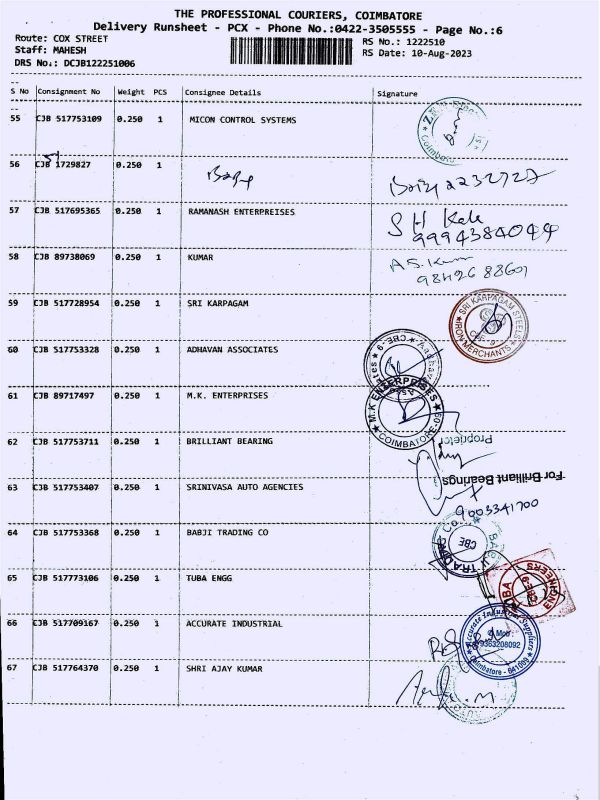 THE PROFESSIONAL COURIERS, COIMBATORE
Delivery Runsheet - PCX - Phone No.:0422-3505555 - Page No.:6
Route: COX STREET
RS No.: 1222510
Staff: MAHESH
RS Date: 10-Aug-2023
DRS No.: DCJB122251006
S No Consignment No Weight PCS Consignee Details Signature
55 CJB 517753109 0.250 1 MICON CONTROL SYSTEMS
Coimbatore
56 CJB 1729827 0.250 1
57 CJB 517695365 0.250 1 RAMANASH ENTERPREISES
9994384044
58 CJB 89738069 0.250 1 KUMAR
59 CJB 517728954 0.250 1 SRI KARPAGAM
SRI KARPAGAM STEELS
IRON MERCHANTS
CBE-9
60 CJB 517753328 0.250 1 ADHAVAN ASSOCIATES
CBE-9
61 CJB 89717497 0.250 1 M.K. ENTERPRISES
M.K ENTERPRISES
COIMBATORE-9
62 CJB 517753711 0.250 1 BRILLIANT BEARING
Proprietor
For Brilliant Bearings
63 CJB 517753407 0.250 1 SRINIVASA AUTO AGENCIES
9003341700
64 CJB 517753368 0.250 1 BABJI TRADING CO
CBE
65 CJB 517773106 0.250 1 TUBA ENGG
TUBA ENGINEERS
CBE-9
66 CJB 517709167 0.250 1 ACCURATE INDUSTRIAL
Accurate Industrial Suppliers
9363208092
Coimbatore - 641009
67 CJB 517764370 0.250 1 SHRI AJAY KUMAR